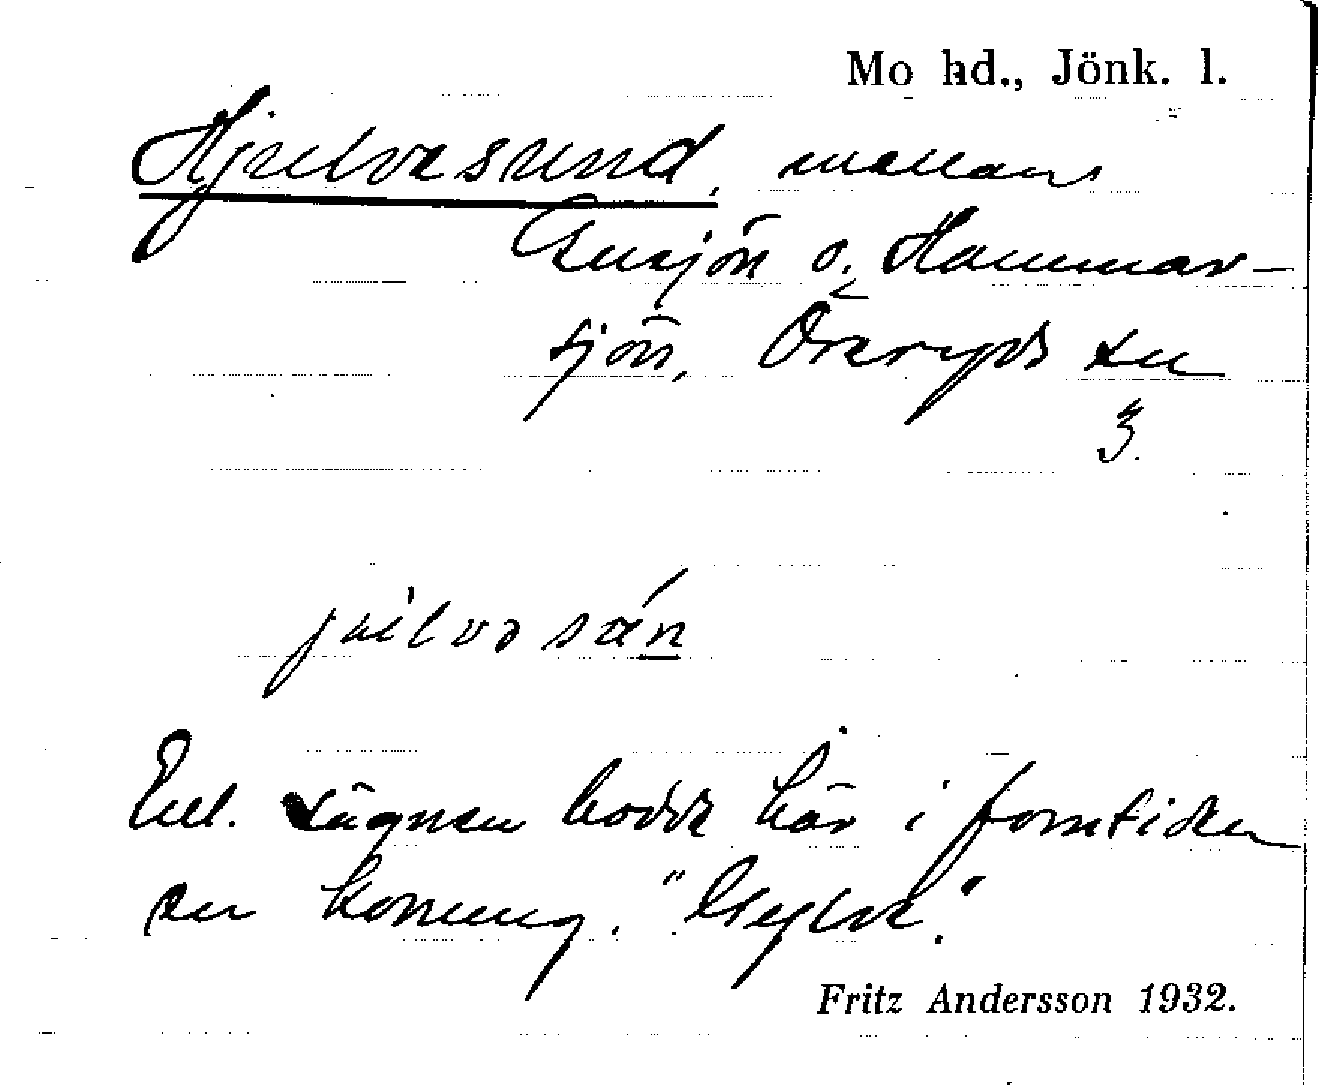 Mo hd., Jönk. l.
Hjelvesund, mellan
Ensjön o. Hammar-
sjön, Öreryds sn
3.
jèlvəsán
Enl. sägnen bodde här i forntiden
en konung. "Gylve".
Fritz Andersson 1932.